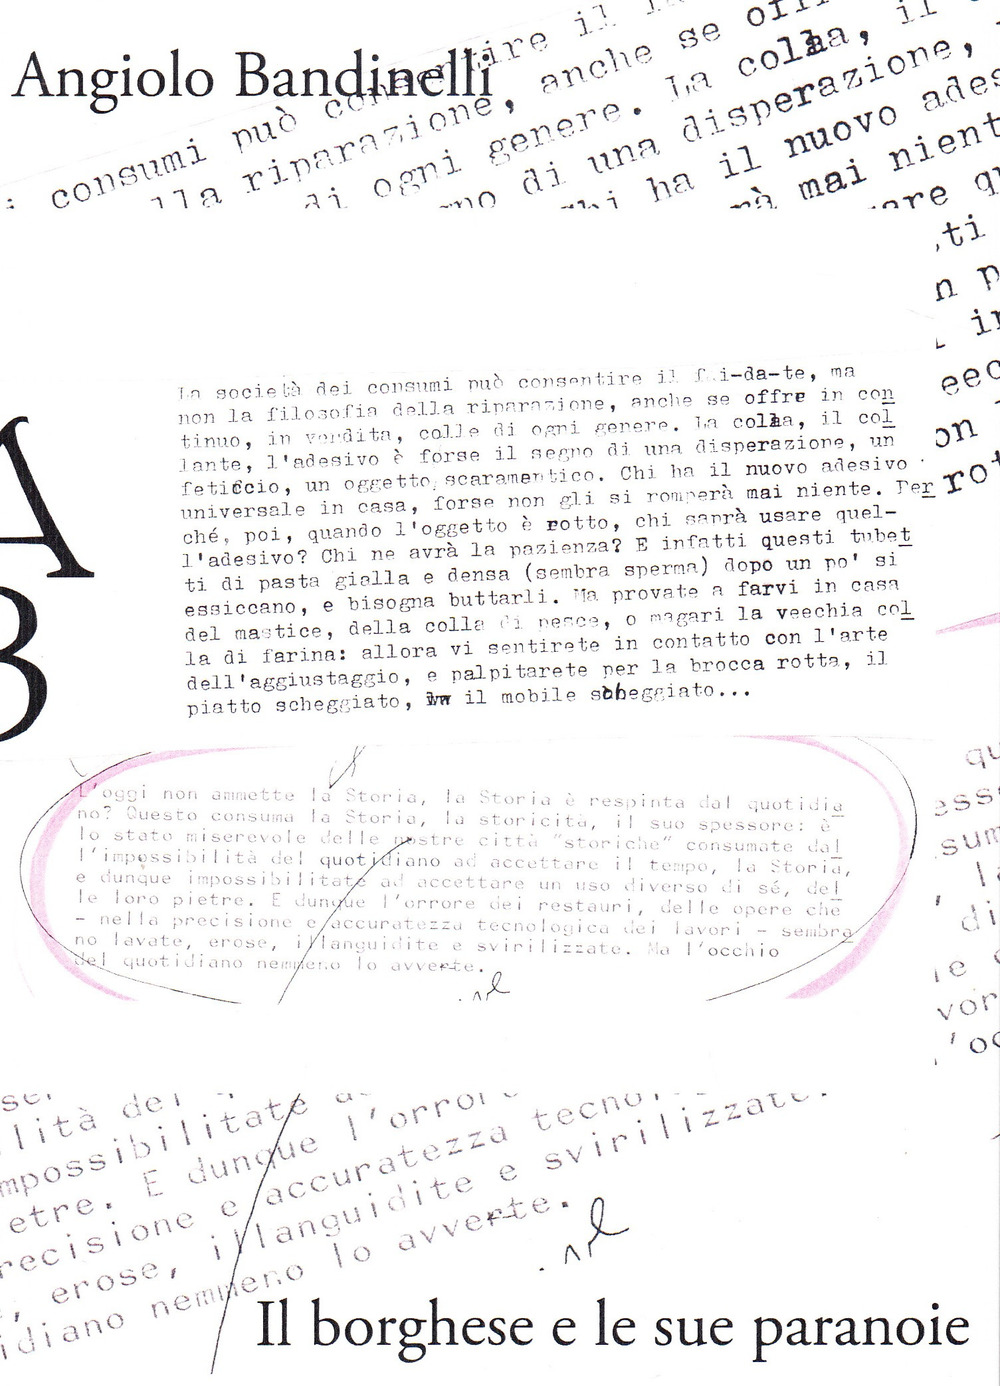 Angiolo Bandinelli
consentire il
consumi può
lla riparazione, anche se offr
di ogni genere. La colla, il
no di una disperazione,
chi ha il nuovo ades
rà mai nient
are q
ti
n p
in
eec
on
rot
A
B
La società dei consumi può consentire il fai-da-te, ma
non la filosofia della riparazione, anche se offre in con
tinuo, in vendita, colle di ogni genere. La colla, il col
lante, l'adesivo è forse il segno di una disperazione, un
feticcio, un oggetto scaramentico. Chi ha il nuovo adesivo
universale in casa, forse non gli si romperà mai niente. Per
ché, poi, quando l'oggetto è rotto, chi saprà usare quel-
l'adesivo? Chi ne avrà la pazienza? E infatti questi tubet
ti di pasta gialla e densa (sembra sperma) dopo un po' si
essiccano, e bisogna buttarli. Ma provate a farvi in casa
del mastice, della colla di pesce, o magari la veechia col
la di farina: allora vi sentirete in contatto con l'arte
dell'aggiustaggio, e palpitarete per la brocca rotta, il
piatto scheggiato, il mobile scheggiato...
L'oggi non ammette la Storia, la Storia è respinta dal quotidia
no? Questo consuma la Storia, la storicità, il suo spessore: è
lo stato miserevole delle nostre città "storiche" consumate dal
l'impossibilità del quotidiano ad accettare il tempo, la Storia,
e dunque impossibilitate ad accettare un uso diverso di sé, del
le loro pietre. E dunque l'orrore dei restauri, delle opere che
- nella precisione e accuratezza tecnologica dei lavori - sembra
no lavate, erose, illanguidite e svirilizzate. Ma l'occhio
del quotidiano nemmeno lo avverte.
qu
esse
sum
la
' di
ie
vor
l'oc
lità del
mpossibilitate a
etre. E dunque l'orror
recisione e accuratezza tecno
, erose, illanguidite e svirilizzate.
idiano nemmeno lo avverte.
Il borghese e le sue paranoie